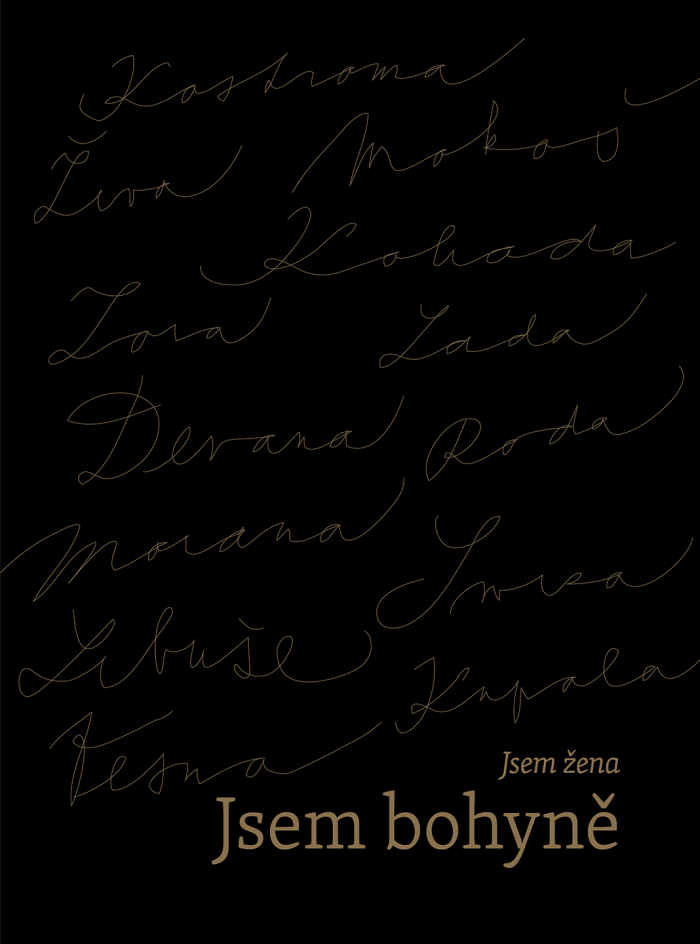 Kostroma
Živa Mokoš
Koliada
Zora Lada
Devana Roda
Morana
Libuše Kupala
Vesna
Jsem žena
Jsem bohyně